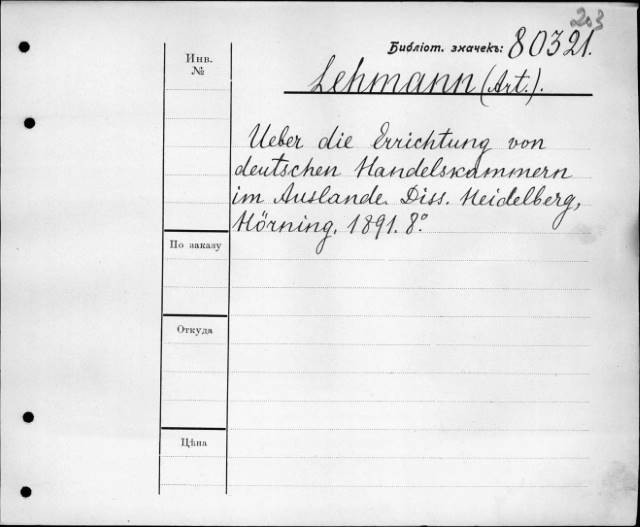 203
Библіот. значекъ: 80321.
Инв.
№
Lehmann (Art.).
Ueber die Errichtung von
deutschen Handelskammern
im Auslande. Diss. Heidelberg,
Hörning, 1891. 8°.
По заказу
Откуда
Цѣна